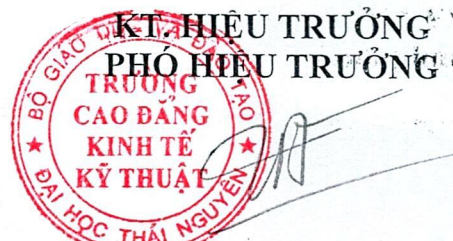 KT. HIỆU TRƯỞNG
PHÓ HIỆU TRƯỞNG
BỘ GIÁO DỤC VÀ ĐÀO TẠO
TRƯỜNG
CAO ĐẲNG
KINH TẾ
KỸ THUẬT
ĐẠI HỌC THÁI NGUYÊN